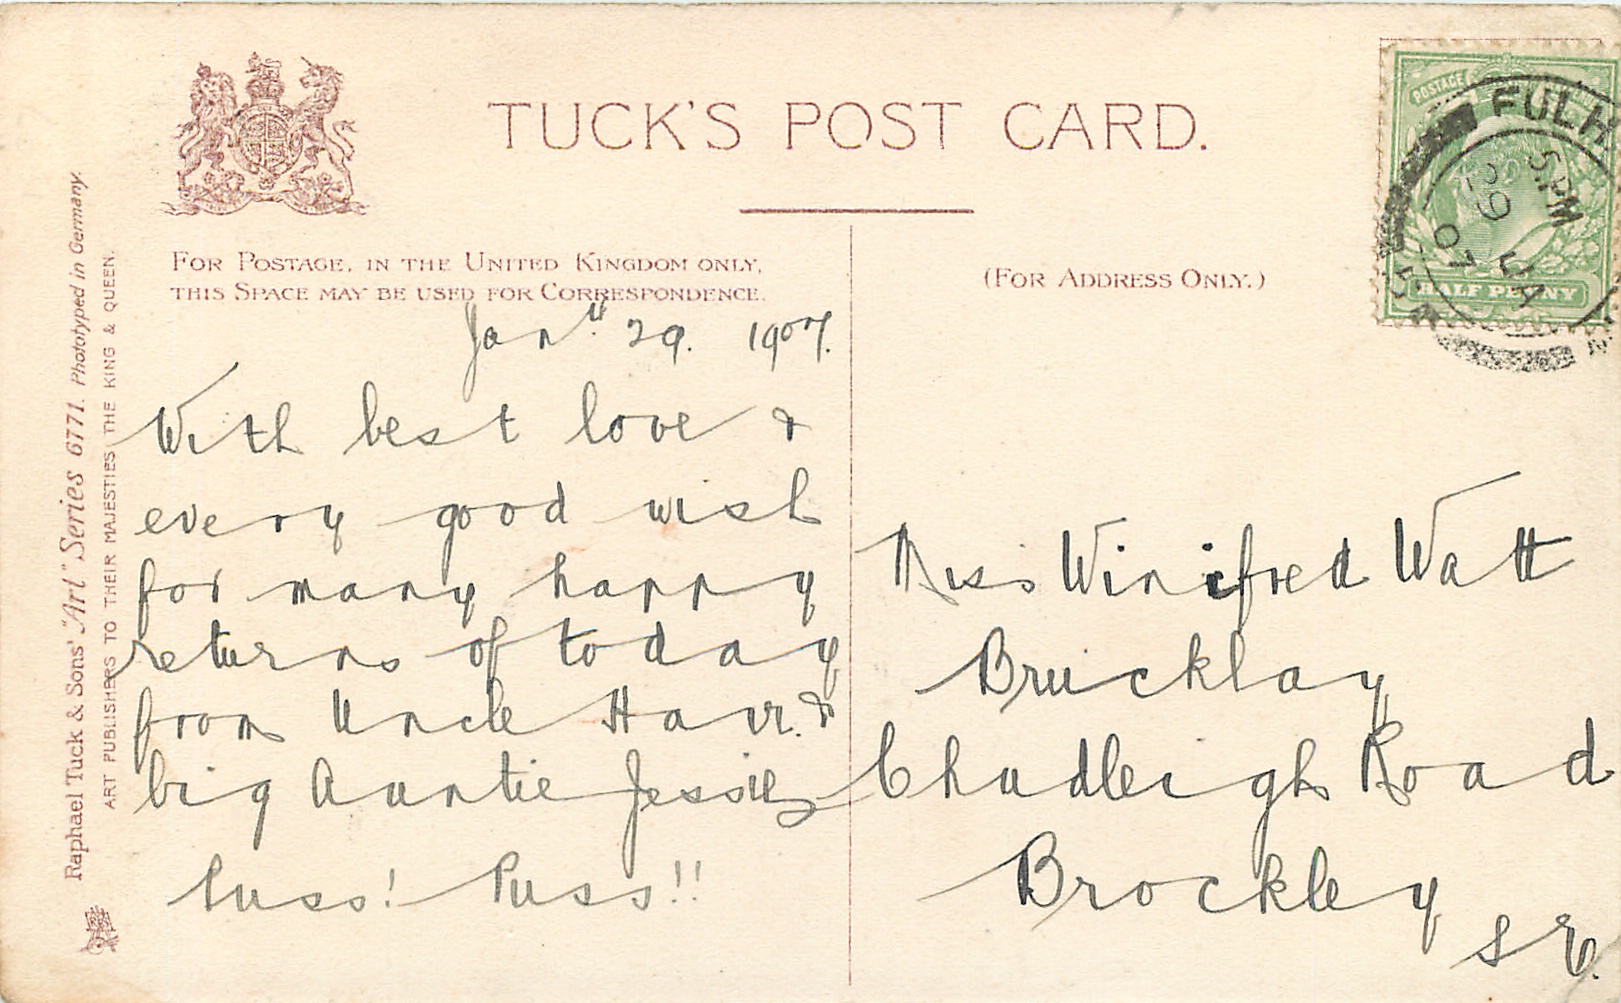 TUCK'S POST CARD.
FOR POSTAGE, IN THE UNITED KINGDOM ONLY,
THIS SPACE MAY BE USED FOR CORRESPONDENCE.
(FOR ADDRESS ONLY.)
Jan 29. 1907.
With best love &
every good wish
for many happy
returns of today
from Uncle &
big Auntie Jessie
Puss! Puss!!
Miss Winifred Watt
Bruicklay
Chudleigh Road
Brockley
S E.
POSTAGE
HALF PENNY
FULH
5. PM
29 JA
07
Raphael Tuck & Sons' "Art" Series 6771. Phototyped in Germany.
ART PUBLISHERS TO THEIR MAJESTIES THE KING & QUEEN.